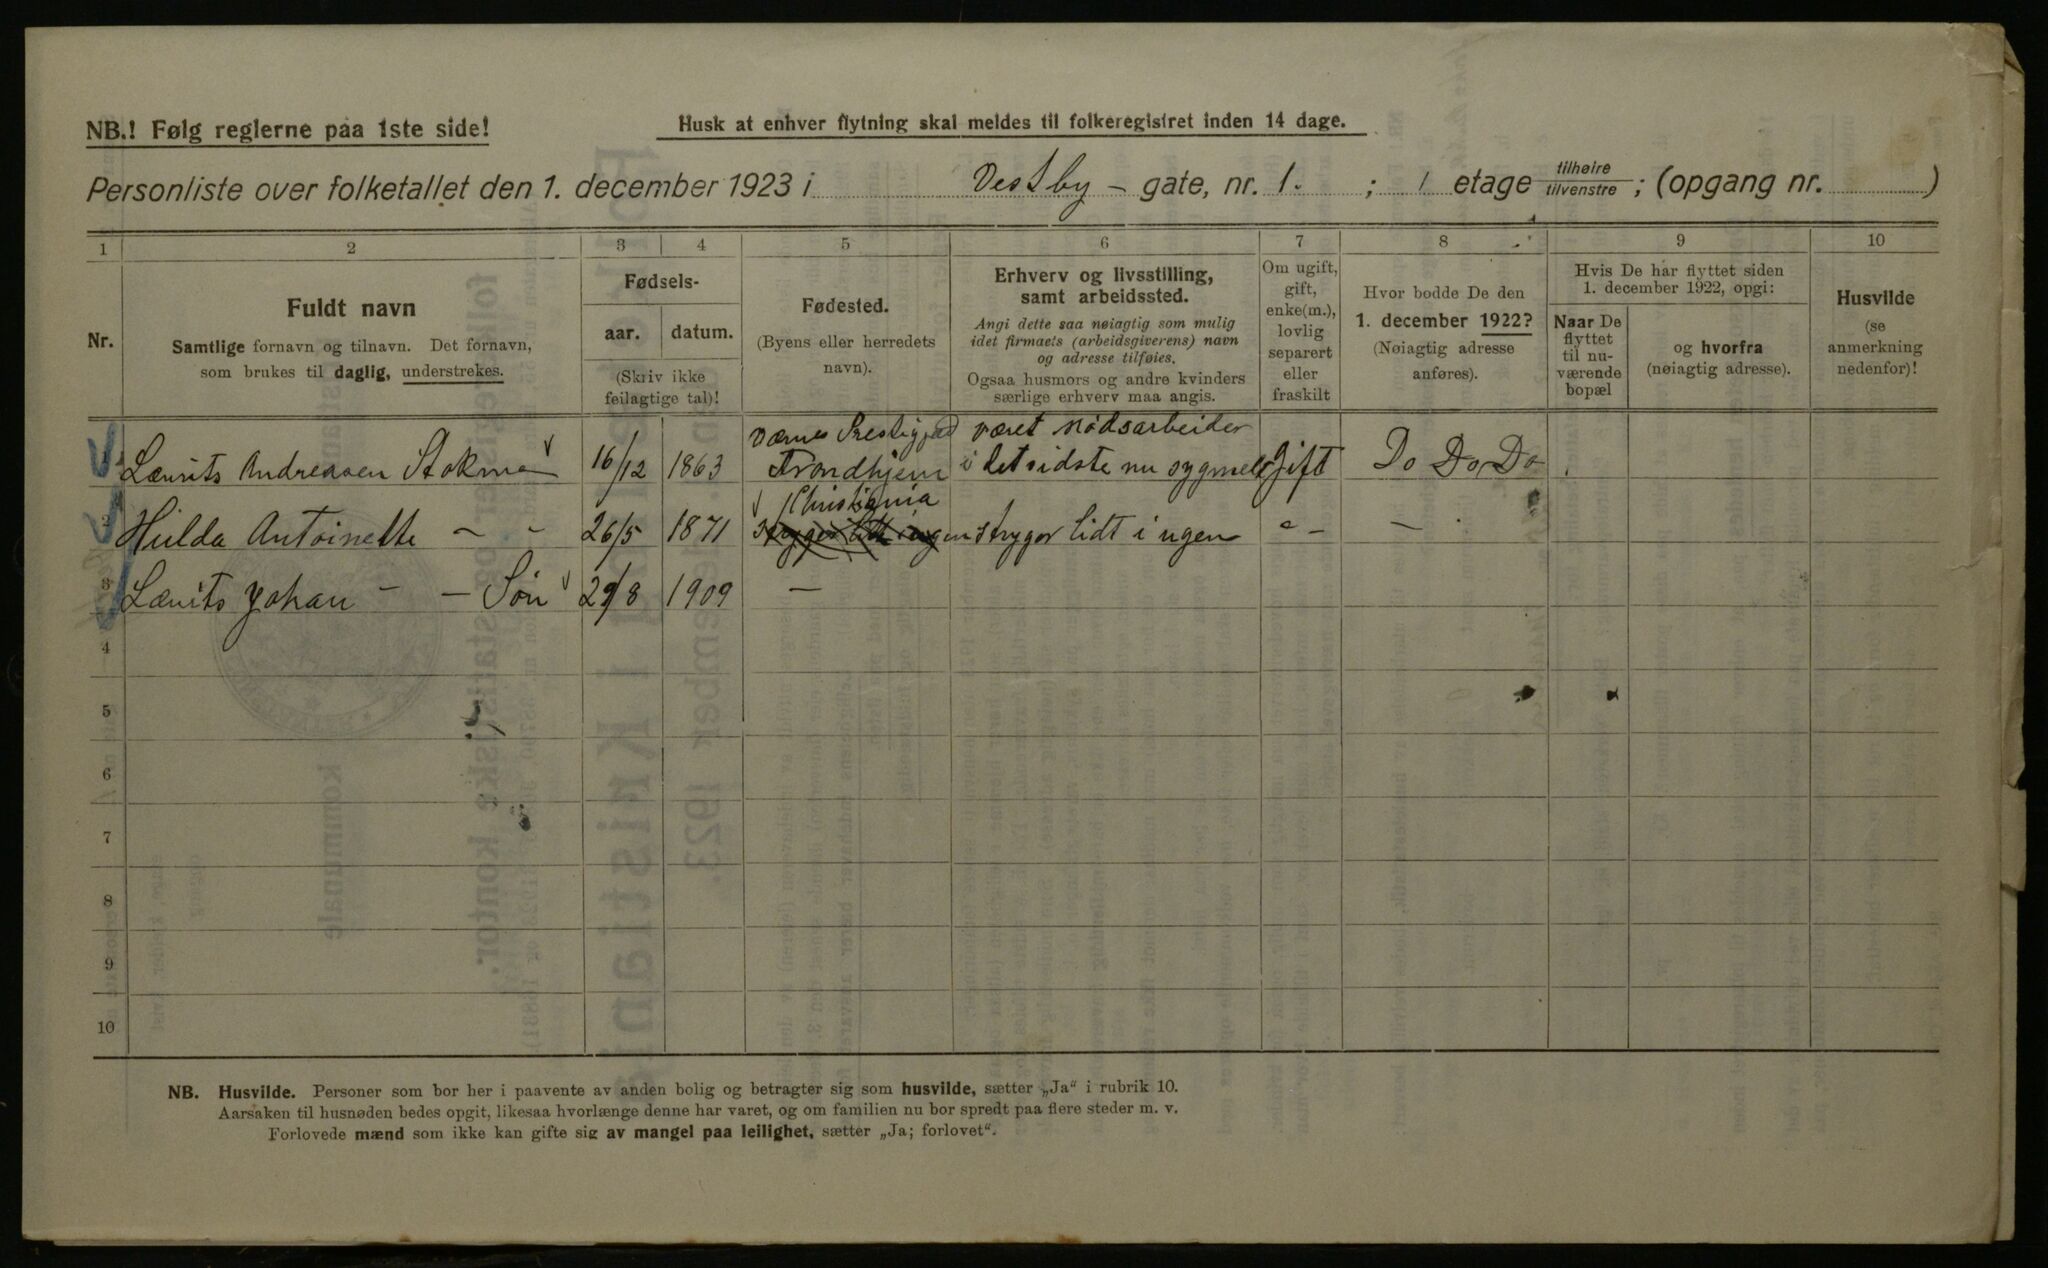 NB.! Følg reglerne paa 1ste side!
Husk at enhver flytning skal meldes til folkeregistret inden 14 dage.
Personliste over folketallet den 1. december 1923 i Vestby - gate, nr. 1. ; 1 etage tilhøire tilvenstre ; (opgang nr. )
1 2 3 4 5 6 7 8 9 10
Nr.
Fuldt navn
Samtlige fornavn og tilnavn. Det fornavn,
som brukes til daglig, understrekes.
Fødsels-
aar. datum.
(Skriv ikke
feilagtige tal)!
Fødested.
(Byens eller herredets
navn).
Erhverv og livsstilling,
samt arbeidssted.
Angi dette saa nøiagtig som mulig
idet firmaets (arbeidsgiverens) navn
og adresse tilføies.
Ogsaa husmors og andre kvinders
særlige erhverv maa angis.
Om ugift,
gift,
enke(m.),
lovlig
separert
eller
fraskilt
Hvor bodde De den
1. december 1922?
(Nøiagtig adresse
anføres).
Hvis De har flyttet siden
1. december 1922, opgi:
Naar De
flyttet
til nu-
værende
bopæl
og hvorfra
(nøiagtig adresse).
Husvilde
(se
anmerkning
nedenfor)!
Værnes Prestigjæld været Nødsarbeider
1 Laurits Andreasen Stokmo 16/12 1863 Trondhjem i det sidste nu sygmelt Gift Do Do Do
Christiania
2 Hilda Antoinette - - 26/5 1871 stryger lidt i ugen stryger lidt i ugen " - -
3 Laurits Johan - - Søn 29/8 1909 -
4
5
6
7
8
9
10
NB. Husvilde. Personer som bor her i paavente av anden bolig og betragter sig som husvilde, sætter „Ja" i rubrik 10.
Aarsaken til husnøden bedes opgit, likesaa hvorlænge denne har varet, og om familien nu bor spredt paa flere steder m. v.
Forlovede mænd som ikke kan gifte sig av mangel paa leilighet, sætter „Ja; forlovet".